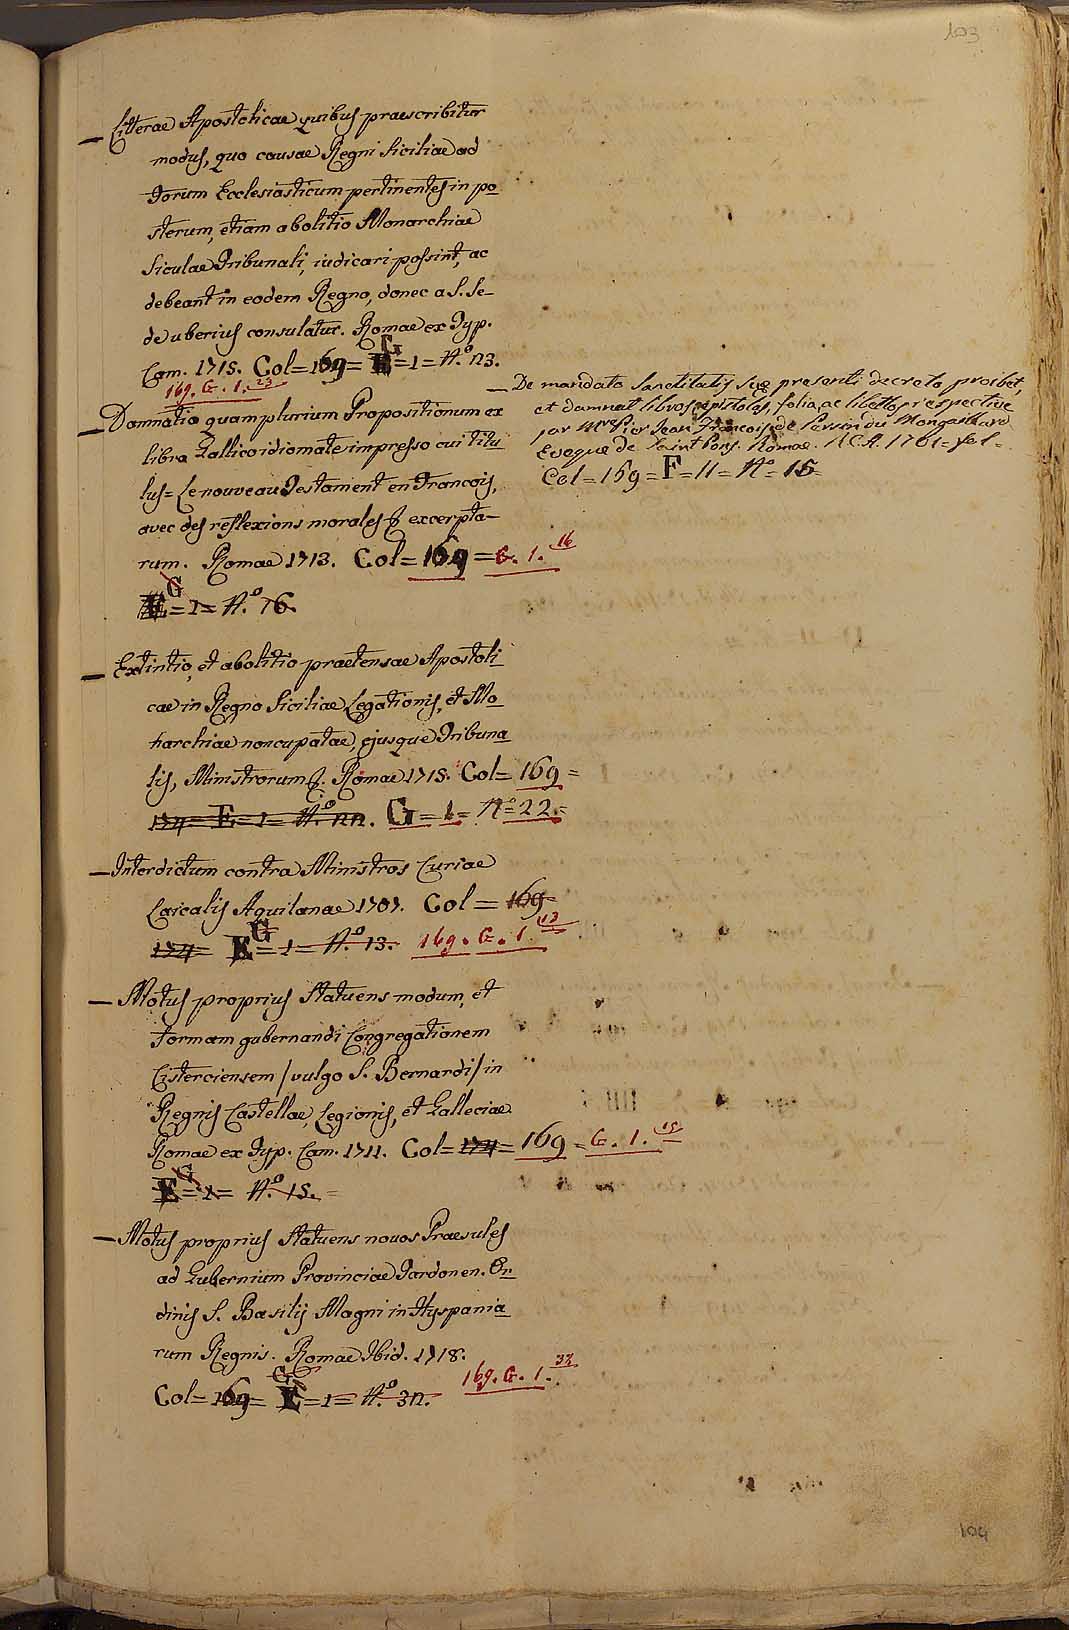 103
— Litterae Apostolicae quibus praescribitur
modus, quo causae Regni Siciliae ad
Forum Ecclesiasticum pertinentes in po-
sterum, etiam abolitio Monarchiae
Siculae Tribunali, iudicari possint, ac
debeant in eodem Regno, donec a S. Se-
de uberius consulatur. Romae ex Typ.
Cam. 1715. Col=169= G =1= N.º 23.
169. G. 1. 23
— Damnatio quamplurium Propositionum ex
libro Gallico idiomate impresso cui titu-
lus= Le nouveau Testament en Francois,
avec des reflexions morales &c excerpta-
rum. Romae 1713. Col=169= G. 1. 16
G
E=1= N.º 16.
— Extintio, et abolitio praetensae Apostoli-
cae in Regno Siciliae Legationis, et Mo-
narchiae noncupatae, ejusque Tribuna-
lis, Ministrorum &c. Romae 1715. Col= 169=
174= E=1= N.º 22. G=1= Nº=22.=
— Interdictum contra Ministros Curiae
Laicalis Aquilanae 1707. Col= 169
174= G =1= N.º 13. 169. G. 1. 13
— Motus proprius statuens modum, et
formam gubernandi Congregationem
Cisterciensem /vulgo S. Bernardi/ in
Regnis Castellae, Legionis, et Galleciae.
Romae ex Typ. Cam. 1711. Col=174= 169= G. 1. 15
G
E=1= N.º 15.=
— Motus proprius statuens novos Praesules
ad Gubernium Provinciae Tardonen. Or-
dinis S. Basilij Magni in Hyspania-
rum Regnis. Romae Ibid. 1718.
169. G. 1. 32
G
Col=169= E=1= N.º 32.
— De mandato Sanctitatis suę presenti decreto proibet,
et damnat libros, epistolas, folia, ac libellos respective
par Mre Pier Jean François de Persin du Mongaillard
Eveque de Saint Pons. Romae. R.C.A. 1761= fol=
Col=159=F=11=Nº=15=
104